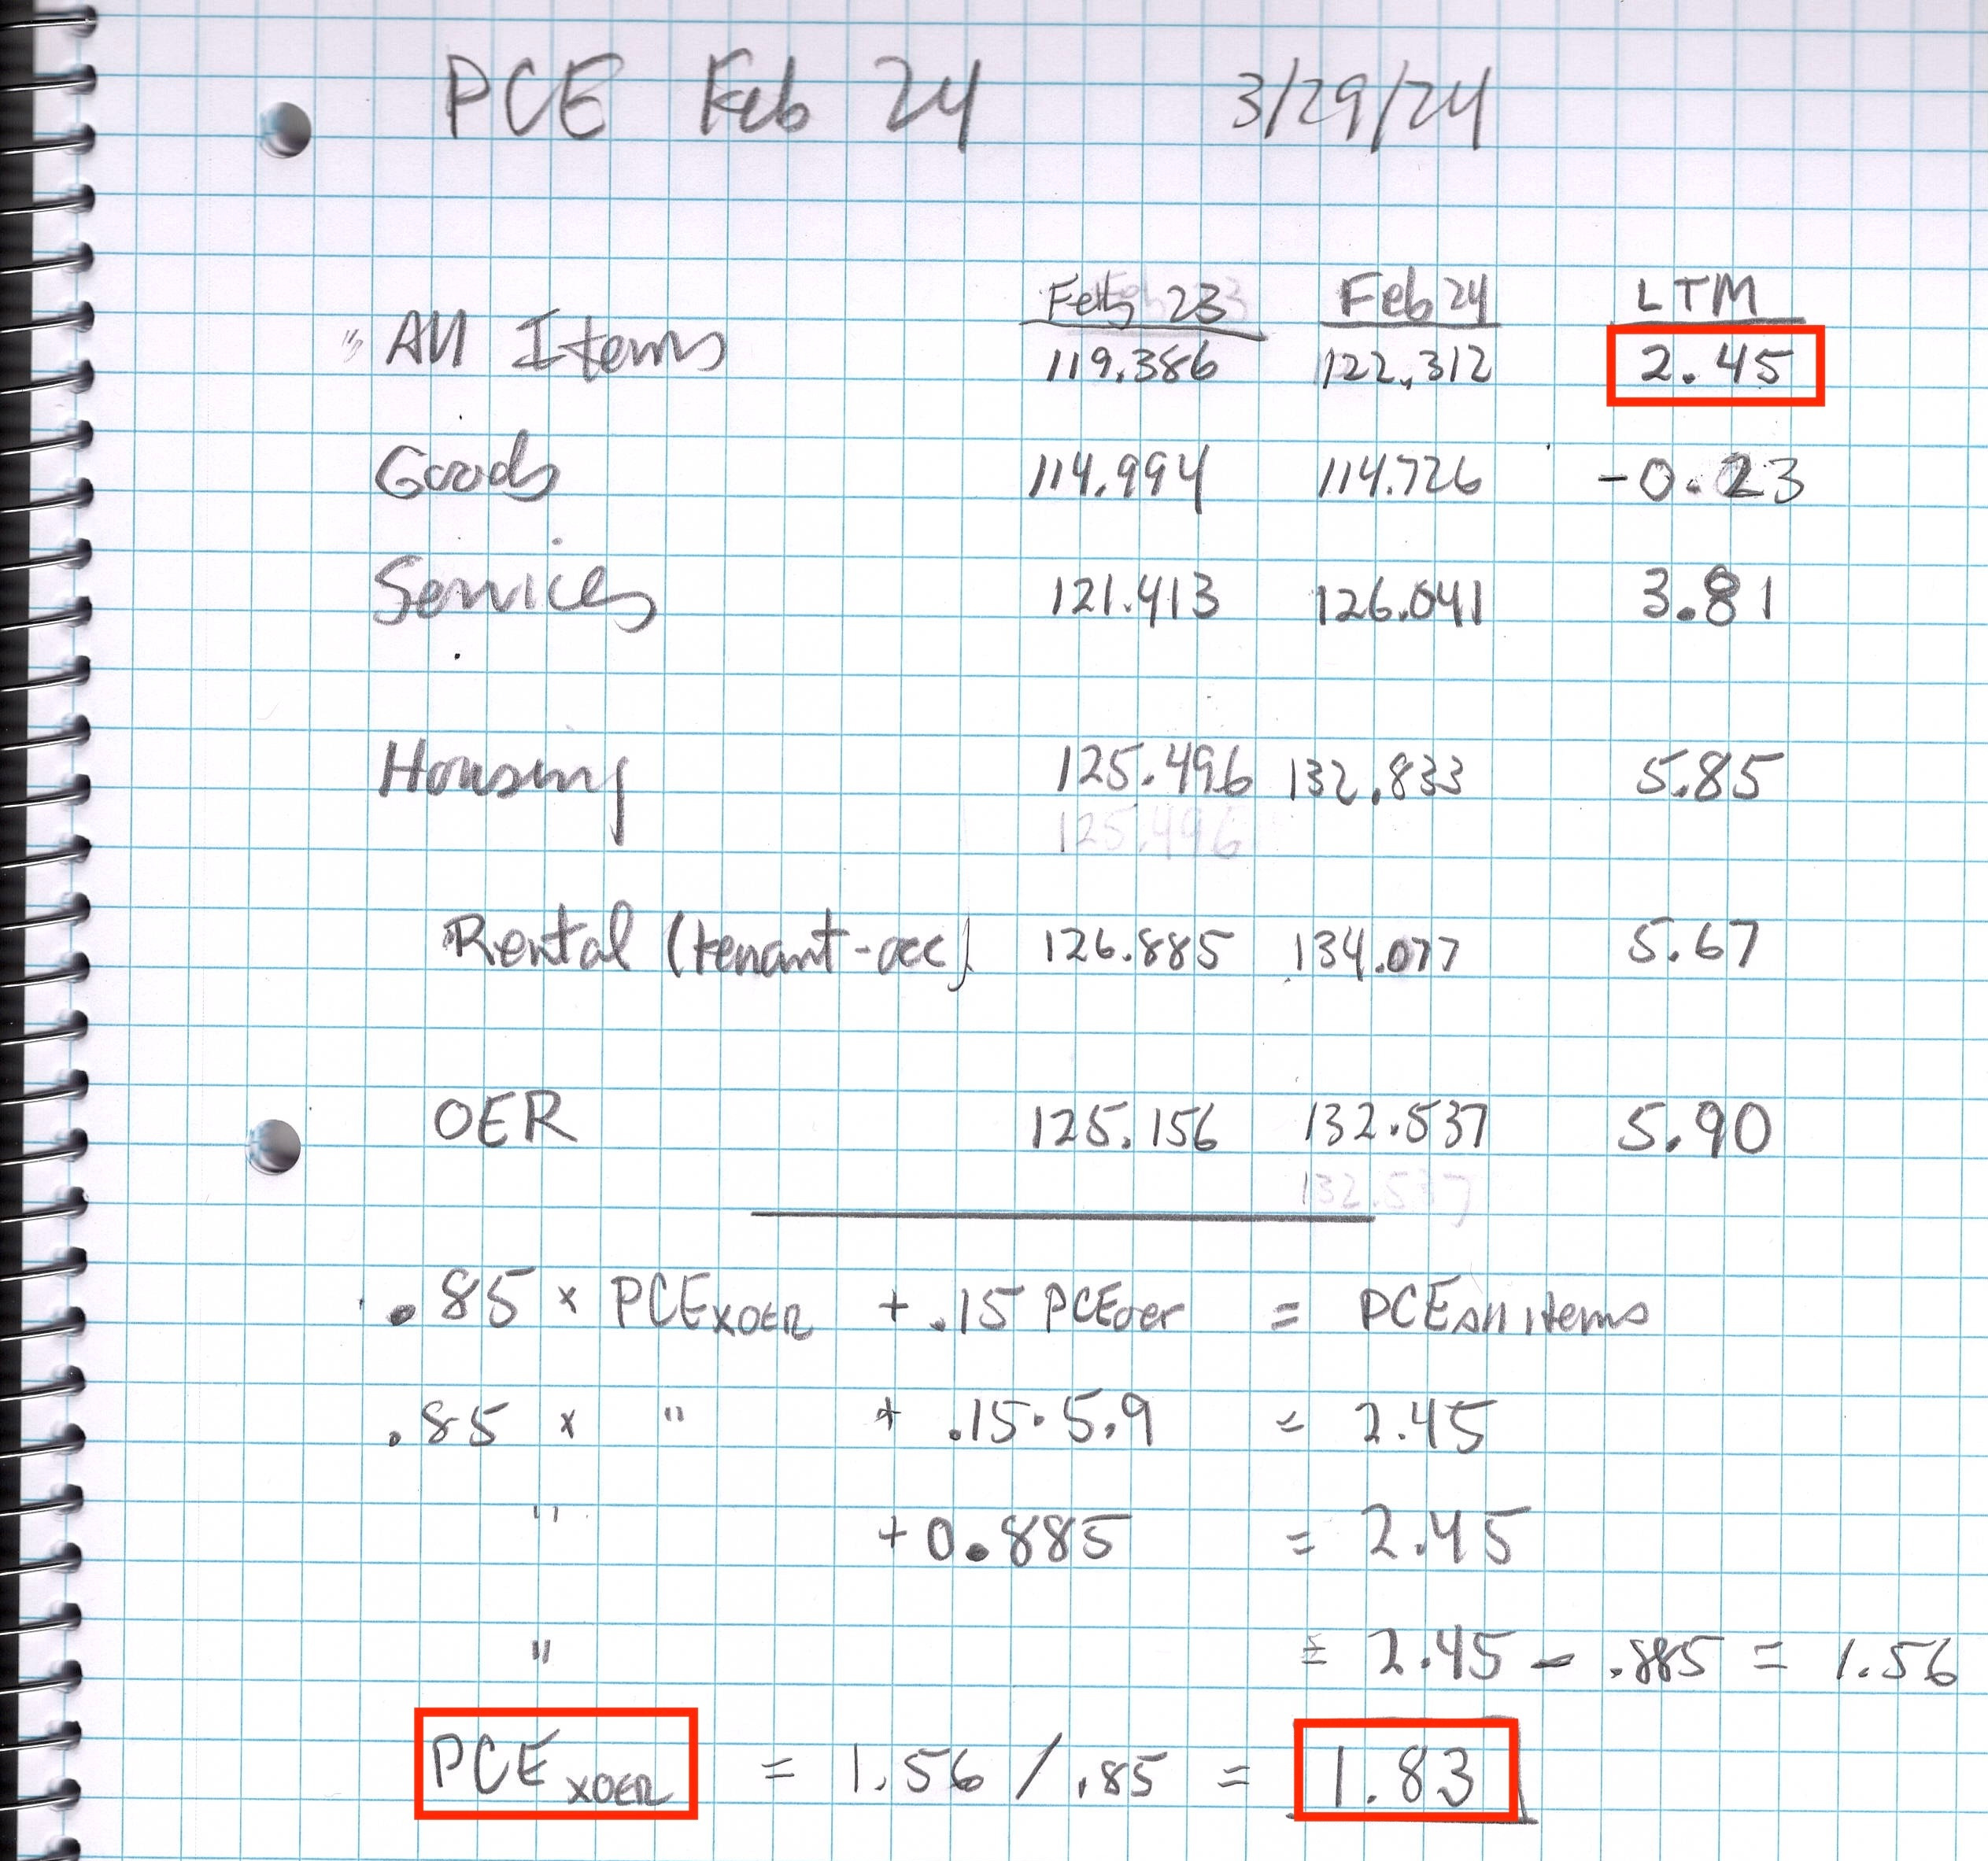 PCE Feb 24 3/29/24
Feb 23 Feb 24 LTM
" All Items 119.386 122.312 2.45
Goods 114.994 114.726 -0.23
Services 121.413 126.041 3.81
Housing 125.496 132.833 5.85
125.496
Rental (tenant-occ) 126.885 134.077 5.67
OER 125.156 132.537 5.90
132.537
.85 x PCE XOER + .15 PCE oer = PCE All items
.85 x " + .15 · 5.9 = 2.45
" + 0.885 = 2.45
" = 2.45 - .885 = 1.56
PCE XOER = 1.56 / .85 = 1.83